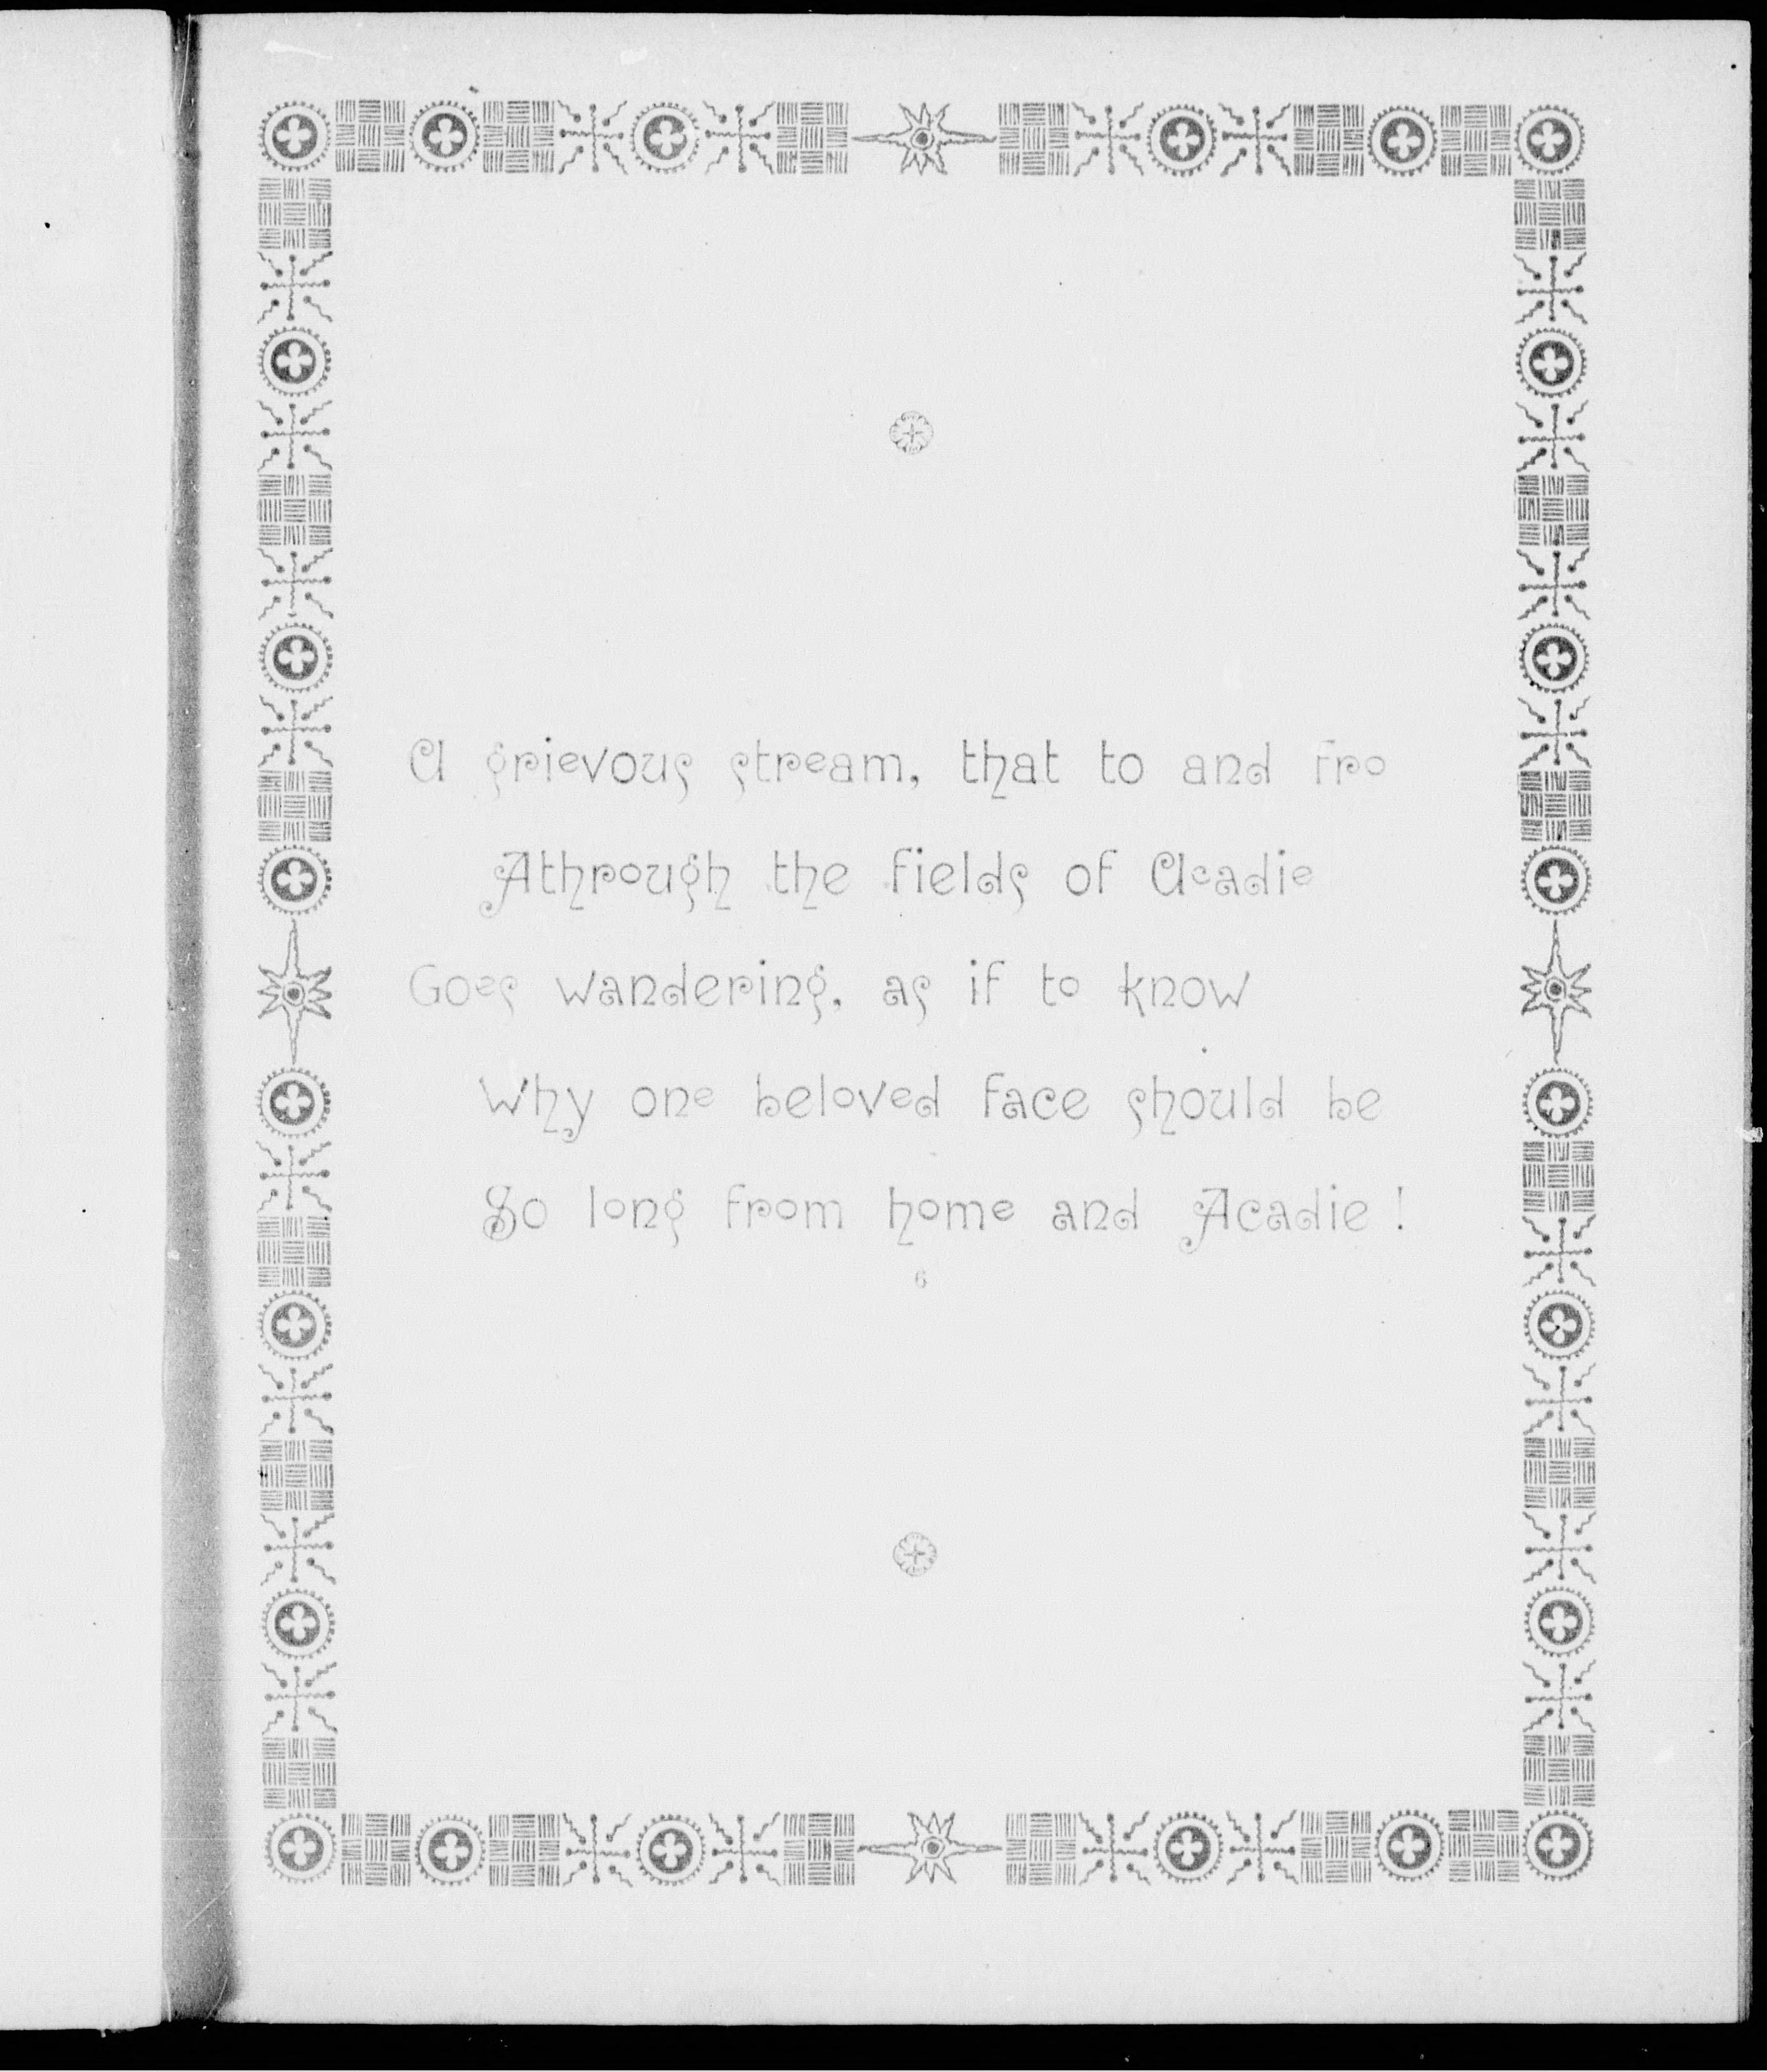 A grievous stream, that to and fro
Athrough the fields of Acadie
Goes wandering, as if to know
Why one beloved face should be
So long from home and Acadie !
6